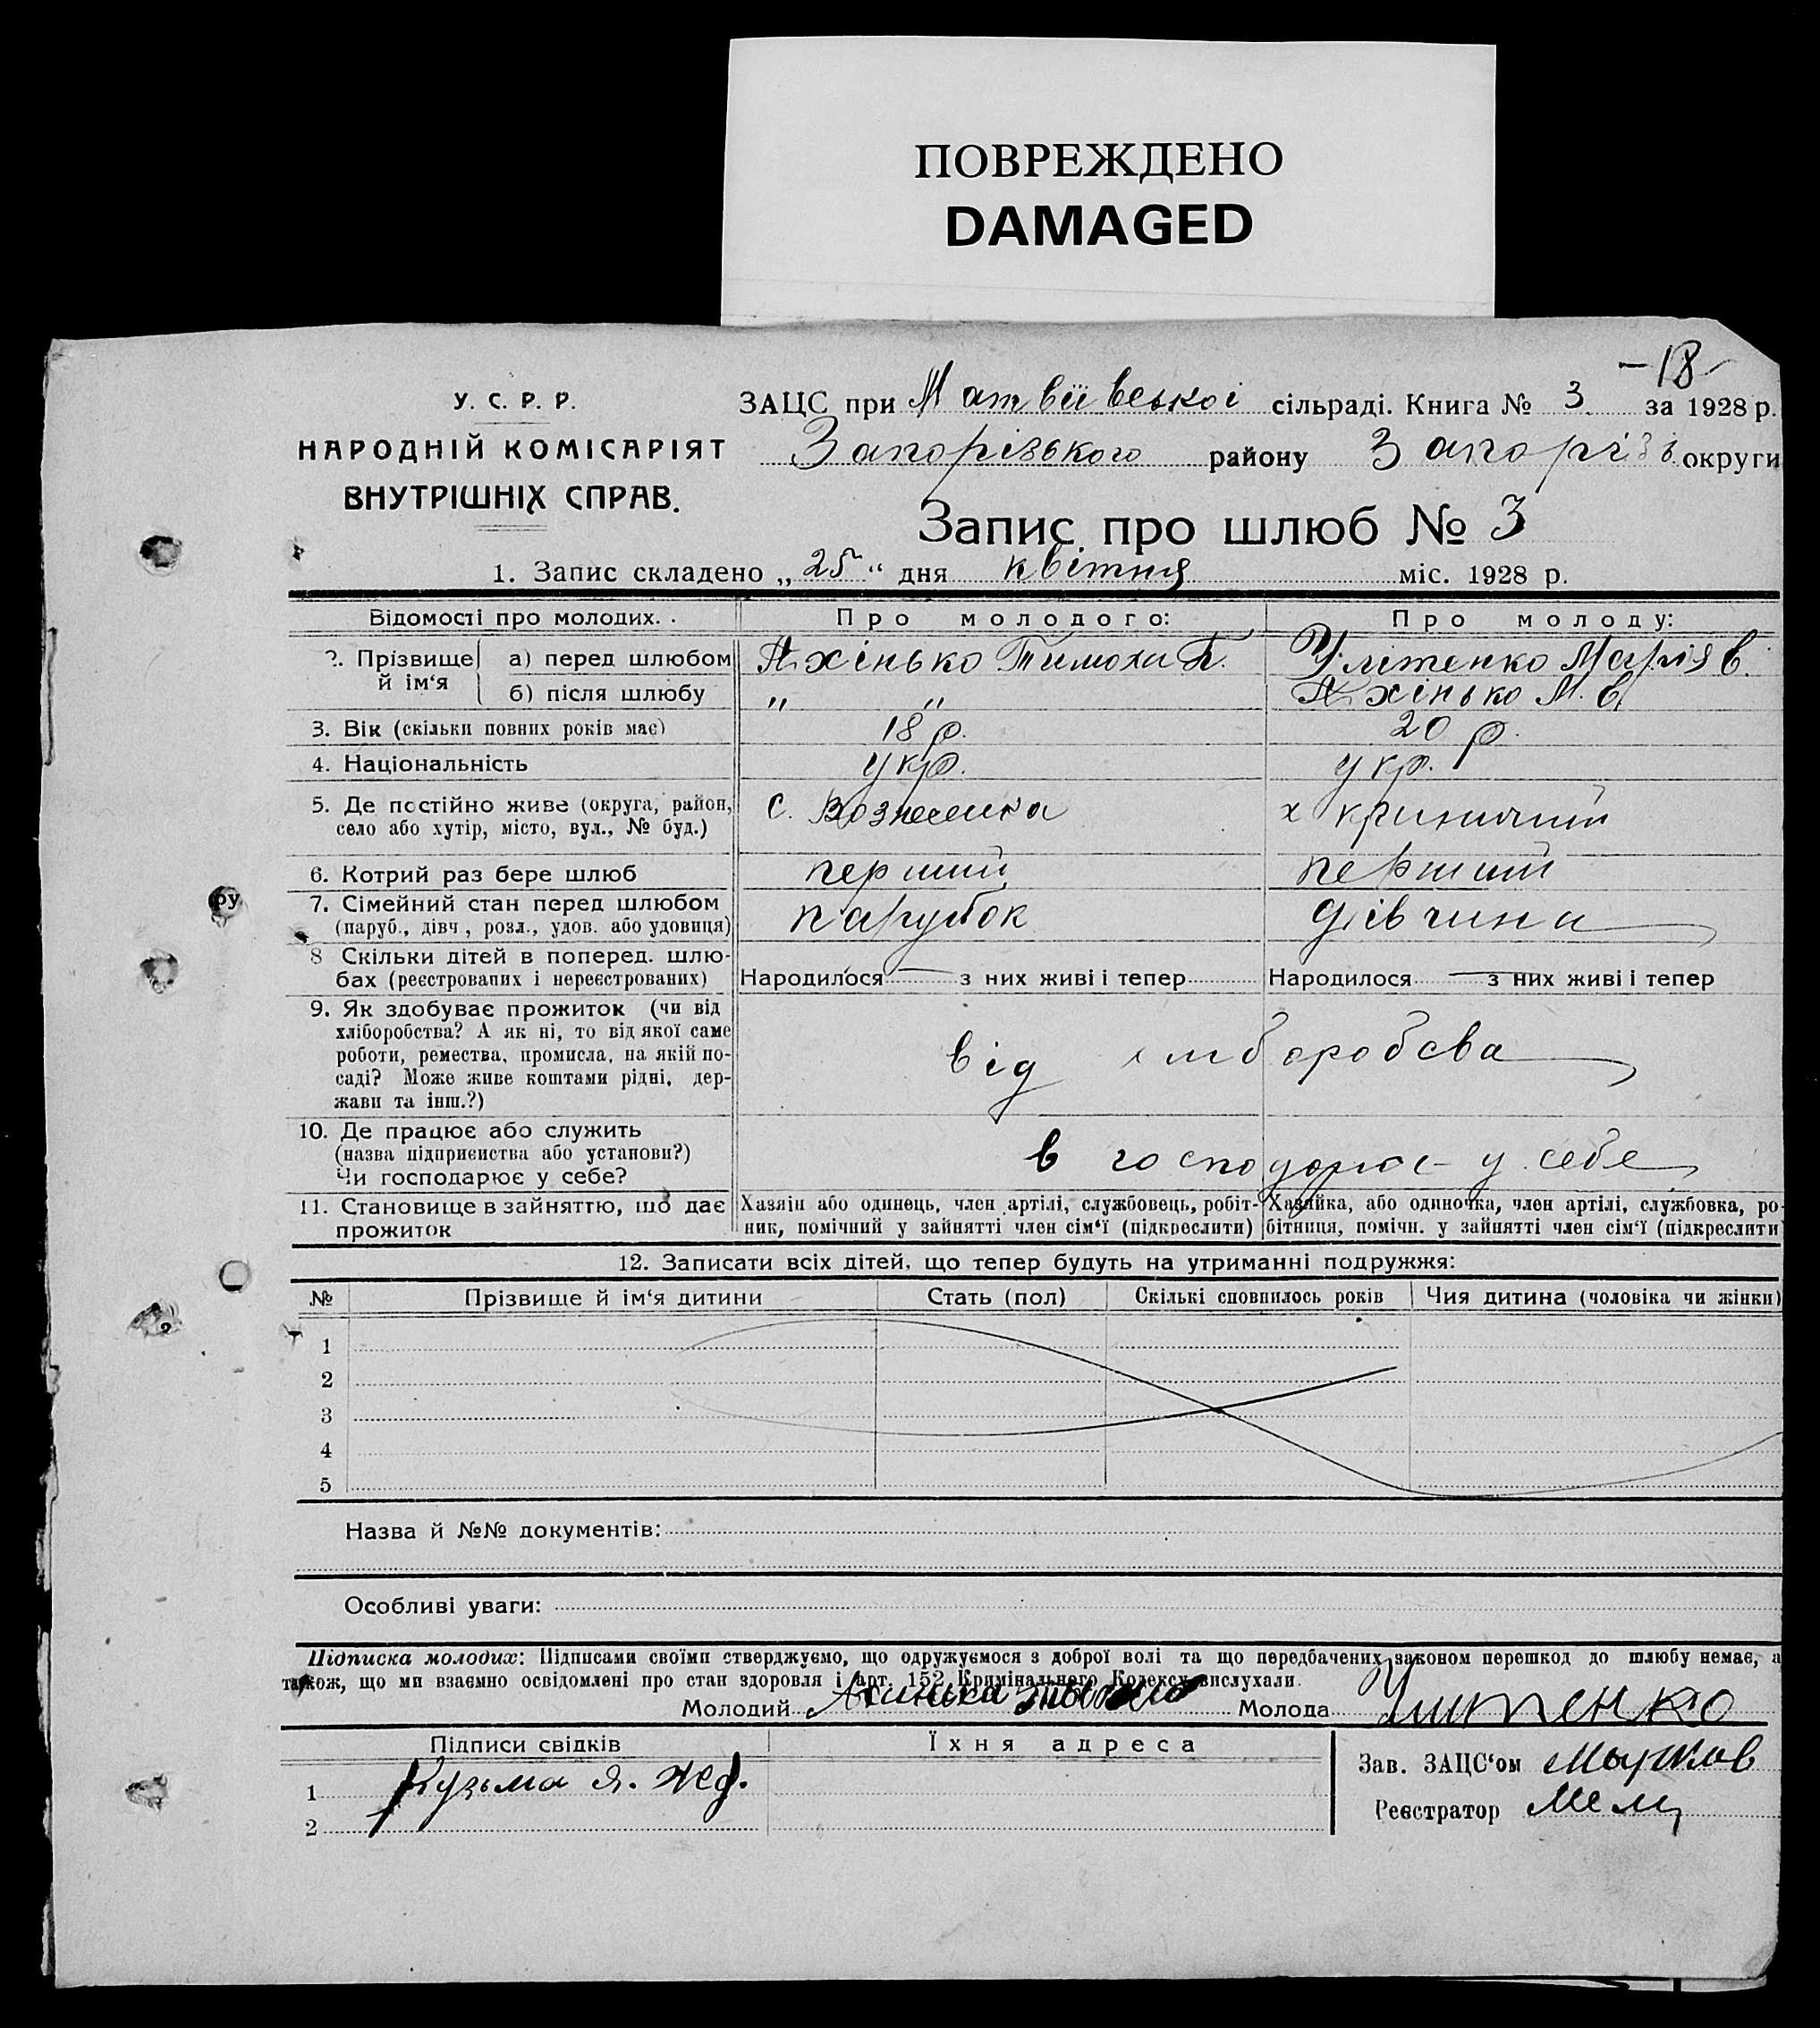 ПОВРЕЖДЕНО
DAMAGED
–18
У. С. Р. Р.
НАРОДНІЙ КОМІСАРІЯТ
ВНУТРІШНІХ СПРАВ.
ЗАЦС при Матвіївської сільраді. Книга № 3 за 1928 р.
Запорізького району Запорізь округи
Запис про шлюб № 3
1. Запис складено „ 25 “ дня квітня міс. 1928 р.
Відомості про молодих. Про молодого: Про молоду:
2. Прізвище й ім‘я а) перед шлюбом Яхінько Тимохи П. Улітенко Марія В.
б) після шлюбу " " Яхінько М. В.
3. Вік (скільки повних років має) 18 р. 20 р.
4. Національність укр. укр.
5. Де постійно живе (округа, район, с. Вознесенка х
село або хутір, місто, вул., № буд.)
6. Котрий раз бере шлюб перший перший
7. Сімейний стан перед шлюбом парубок дівчина
(паруб., дівч, розл., удов. або удовиця)
8 Скільки дітей в поперед. шлю- Народилося з них живі і тепер Народилося з них живі і тепер
бах (реєстрованих і нереєстрованих)
9. Як здобуває прожиток (чи від
хліборобства? А як ні, то від якої саме від хліборобсва
роботи, ремества, промисла, на якій по-
саді? Може живе коштами рідні, дер-
жави та інш.?)
10. Де працює або служить
(назва підприємства або установи?) в у себе
Чи господарює у себе?
11. Становище в зайняттю, що дає Хазяїн або одинець, член артілі, службовець, робіт- Хазяйка, або одиночка, член артілі, службовка, ро-
прожиток ник, помічний у зайнятті член сім‘ї (підкреслити) бітниця, помічн. у зайнятті член сім‘ї (підкреслити)
12. Записати всіх дітей, що тепер будуть на утриманні подружжя:
№ Прізвище й ім‘я дитини Стать (пол) Скількі сповнилось років Чия дитина (чоловіка чи жінки)
1
2
3
4
5
Назва й №№ документів:
Особливі уваги:
Підписка молодих: Підписами своїми стверджуємо, що одружуємося з доброї волі та що передбачених законом перешкод до шлюбу немає, а
також, що ми взаємно освідомлені про стан здоровля і арт. 152 Кримінального Кодексу вислухали.
Молодий Молода Улитенко
Підписи свідків Їхня адреса Зав. ЗАЦС‘ом
1 Кузьма Я.
Реєстратор
2
ру